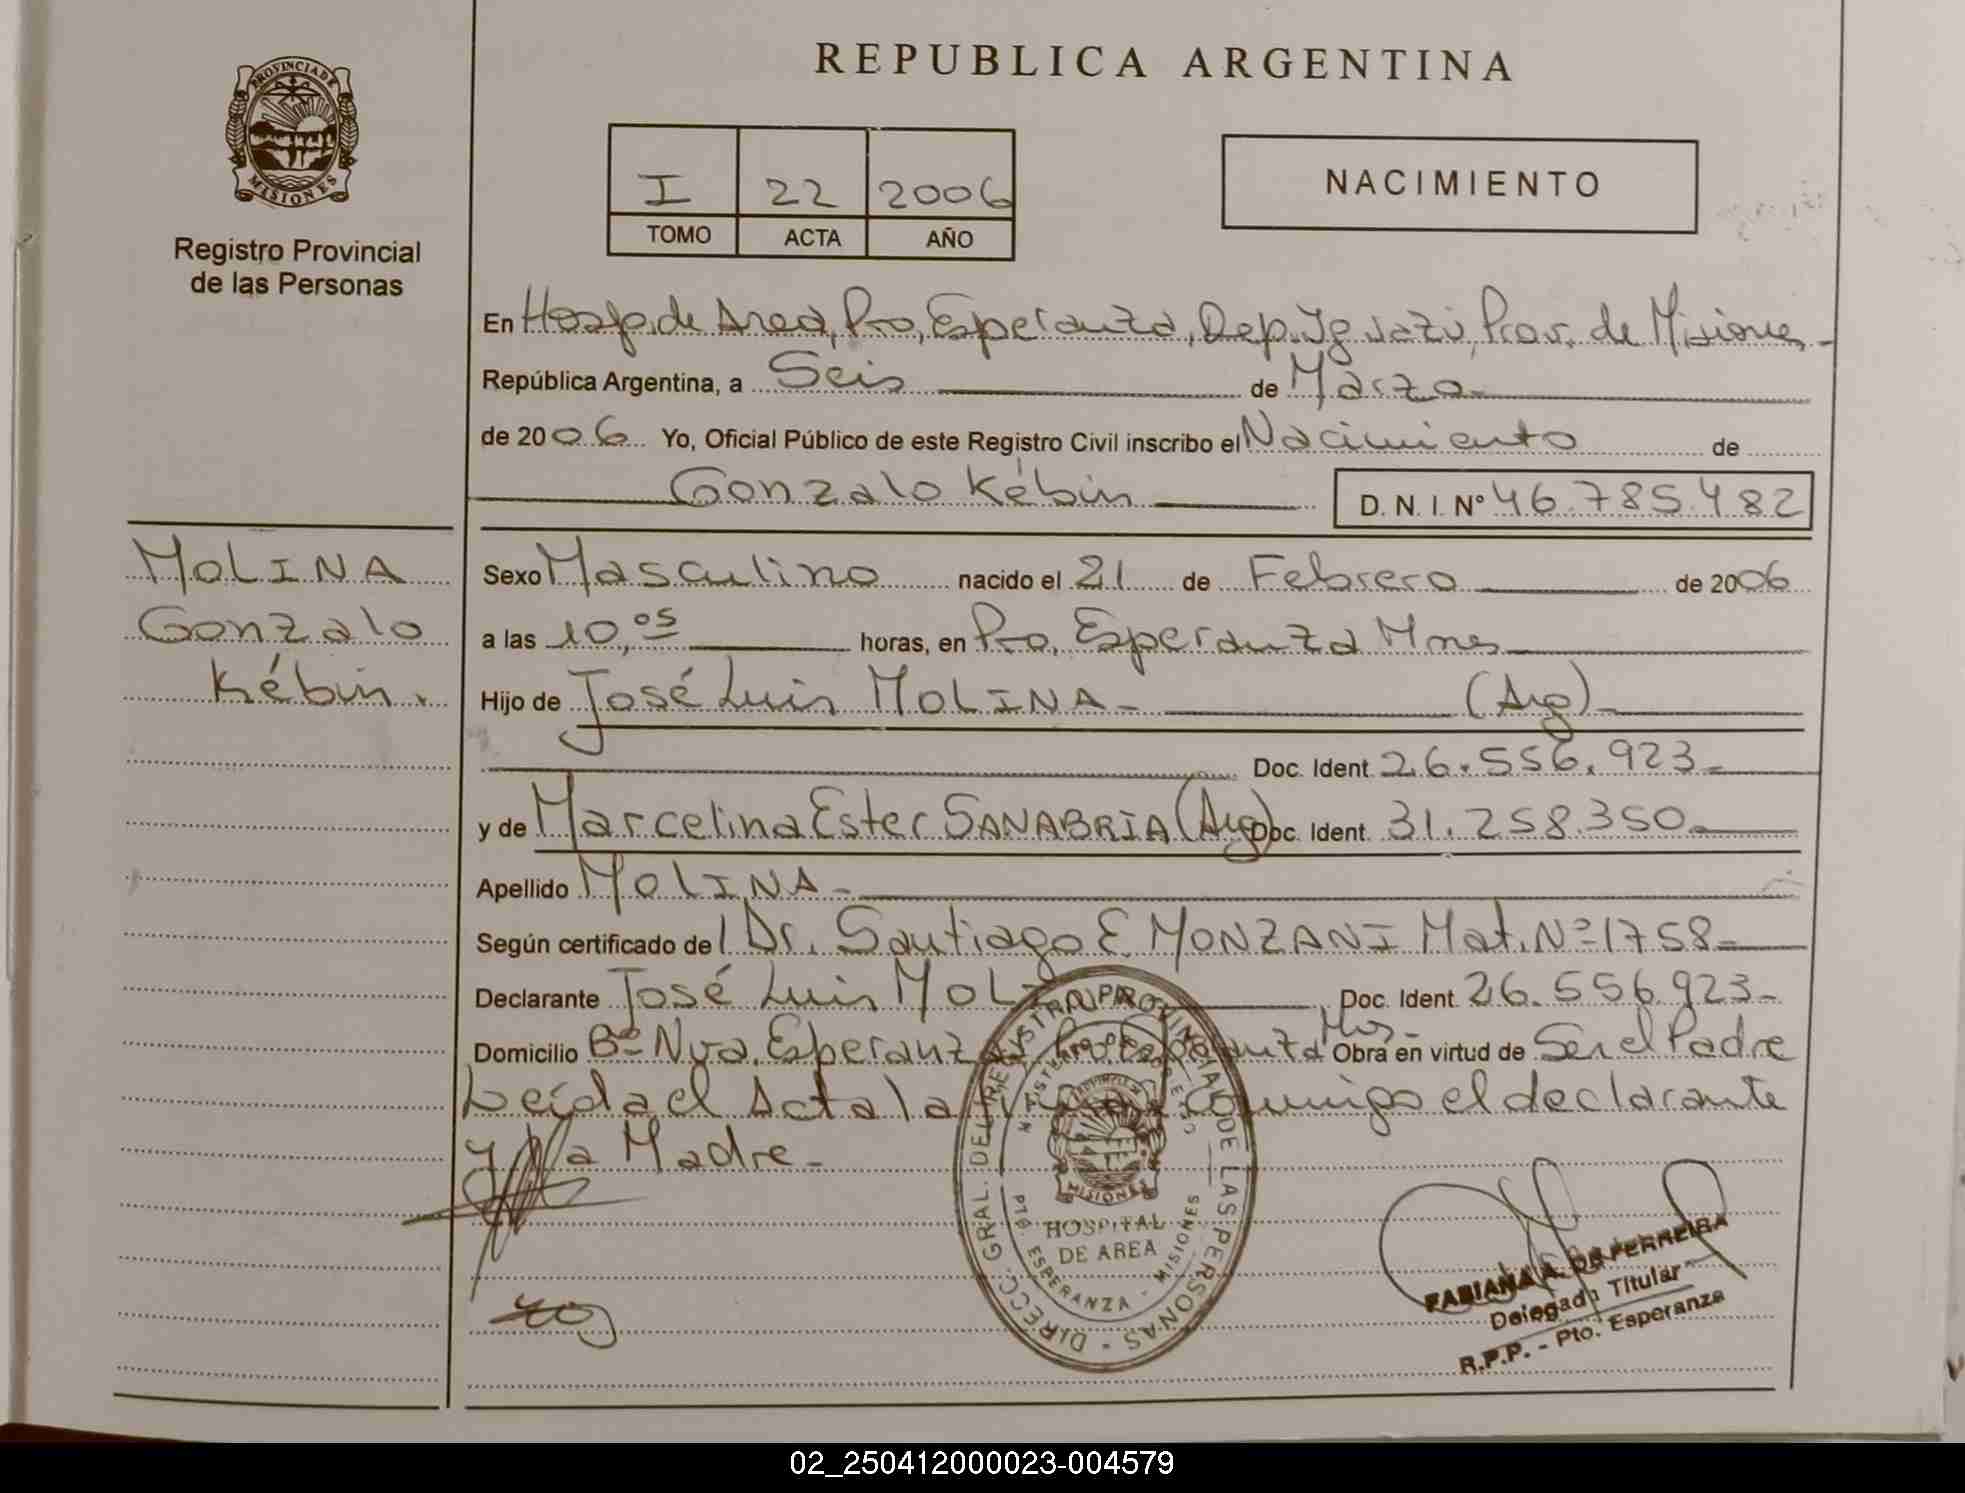 PROVINCIA DE
MISIONES
Registro Provincial
de las Personas
REPUBLICA ARGENTINA
I 22 2006
TOMO ACTA AÑO
NACIMIENTO
En Hosp. de Area, Pto, Esperanza, Dep. Iguazú, Prov. de Misiones
República Argentina, a Seis de Marzo
de 2006 Yo, Oficial Público de este Registro Civil inscribo el Nacimiento de
Gonzalo Kébin D. N. I. N° 46.785.482
MOLINA
Gonzalo
Kébin.
Sexo Masculino nacido el 21 de Febrero de 2006
a las 10,05 horas, en Pto, Esperanza Mnes
Hijo de José Luis MOLINA (Arg)
Doc. Ident. 26.556.923
y de Marcelina Ester SANABRIA (Arg) Doc. Ident. 31.258.350
Apellido MOLINA
Según certificado del Dr. Santiago E. MONZANI Mat. N° 1758
Declarante José Luis MOLINA Doc. Ident. 26.556.923
Domicilio B° Nva. Esperanza Pto Esperanza Mns. Obra en virtud de Ser el Padre
Leída el Acta la firma conmigo el declarante
y la Madre
DIRECC. GRAL. DEL REGISTRO PROVINCIAL DE LAS PERSONAS
MISIONES
HOSPITAL
DE AREA
PTO. ESPERANZA - MISIONES
FABIANA A. DE FERREIRA
Delegada Titular
R.P.P. - Pto. Esperanza
02_250412000023-004579